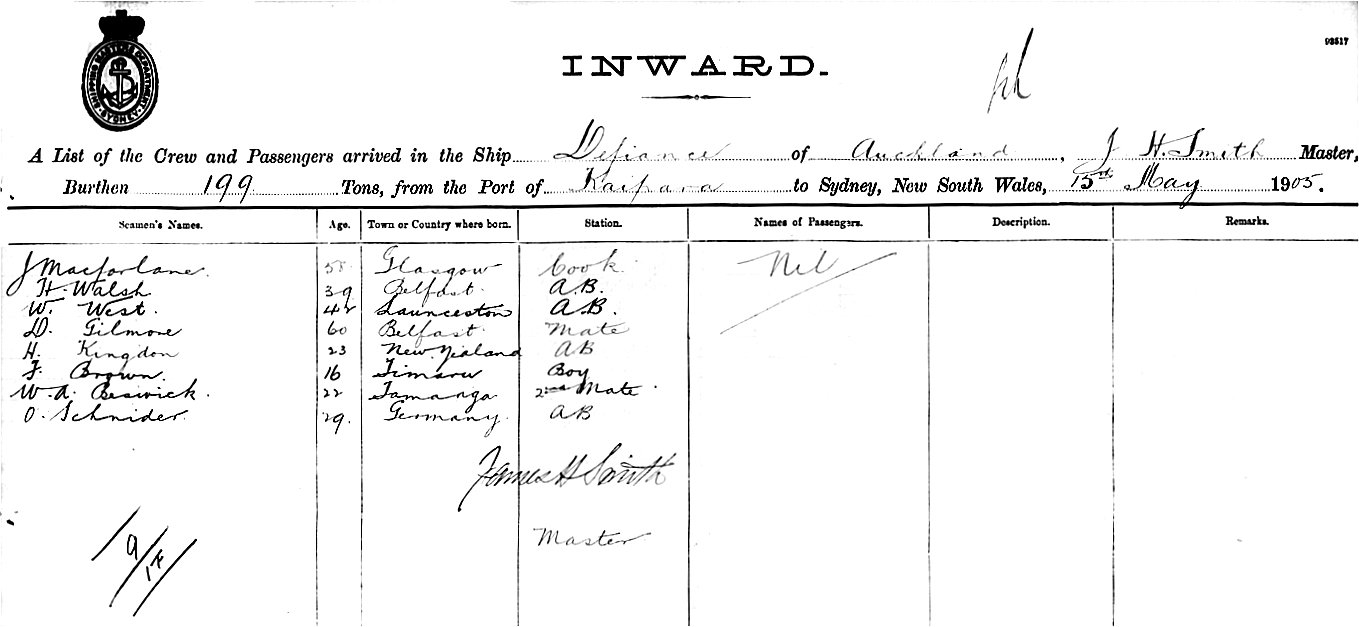 SHIPPING MASTERS DEPARTMENT · SYDNEY ·
93517
INWARD.
A List of the Crew and Passengers arrived in the Ship Defiance of Auckland, J H. Smith Master,
Burthen 199 Tons, from the Port of Kaipara to Sydney, New South Wales, 15th May 1905.
Seamen's Names. Age. Town or Country where born. Station. Names of Passengers. Description. Remarks.
J Macfarlane. 58 Glasgow Cook. Nil
H. Walsh 39 Belfast. A.B.
W. West. 42 Launceston A.B.
D. Gilmore 60 Belfast Mate
H. Kingdon 23 New Zealand AB
F. Brown. 16 Timaru Boy
W. A. Beswick. 22 Tamanga 2nd Mate
O. Schnider. 29. Germany. AB
James H Smith
Master
9/14